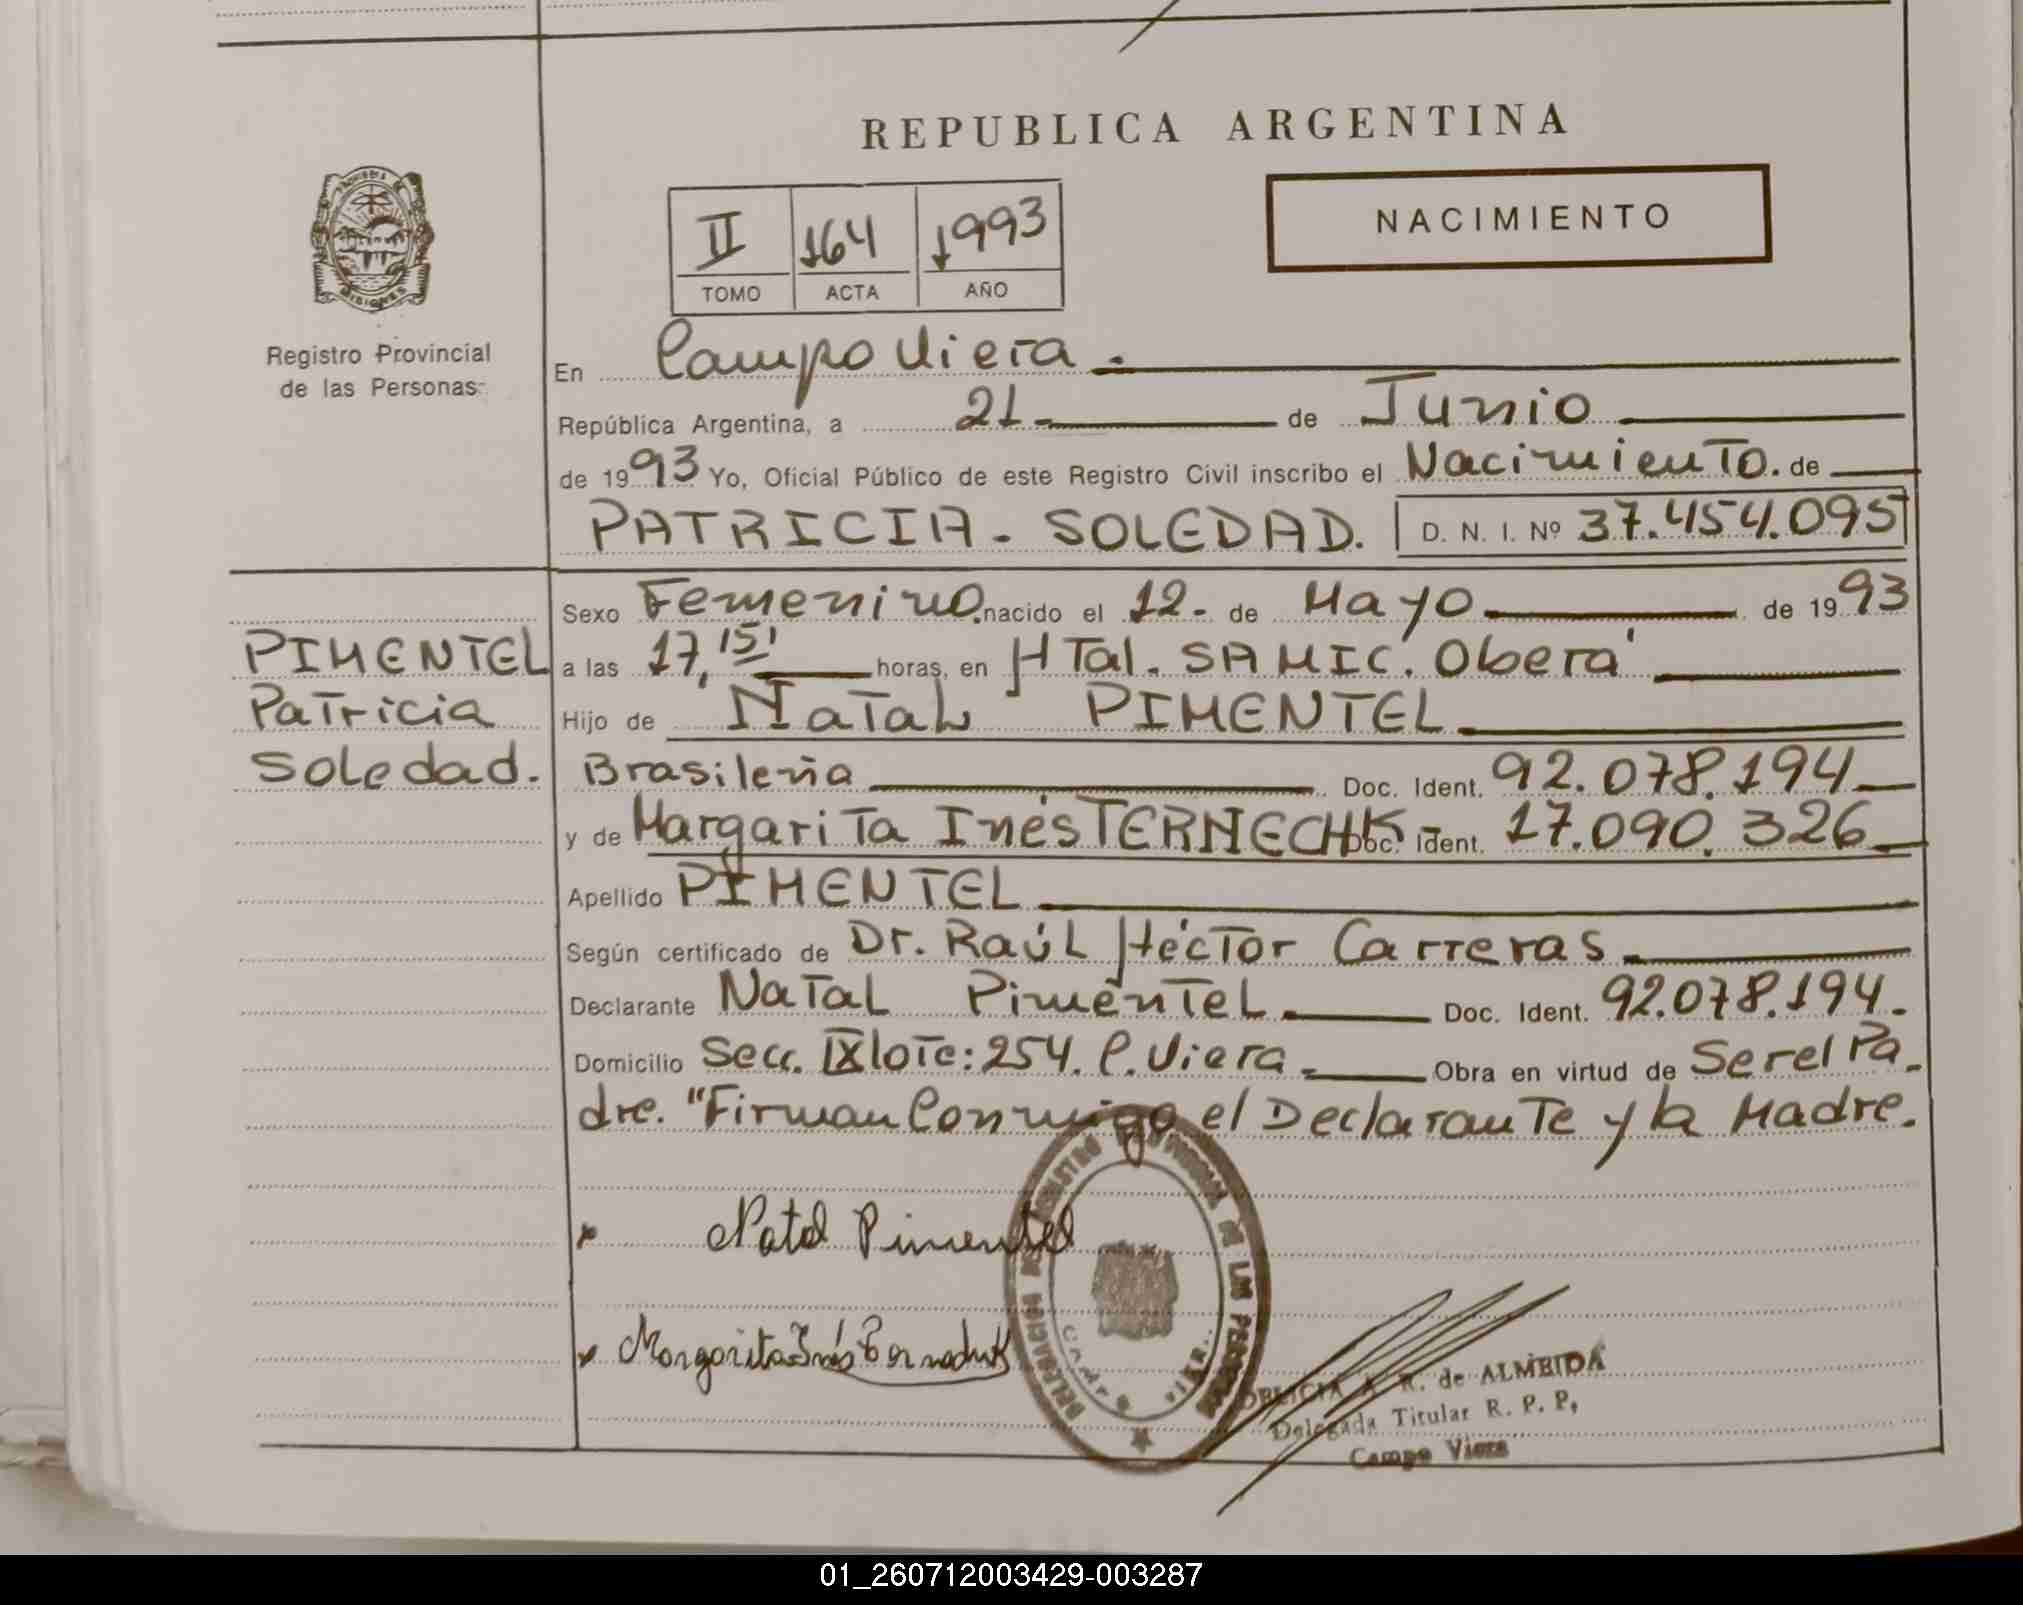 REPUBLICA ARGENTINA
NACIMIENTO
II 164 1993
TOMO ACTA AÑO
PROVINCIA DE MISIONES
Registro Provincial
de las Personas
En Campo Viera.
República Argentina, a 21 de Junio
de 1993 Yo, Oficial Público de este Registro Civil inscribo el Nacimiento. de
PATRICIA - SOLEDAD. D. N. I. Nº 37.454.095
Sexo Femenino. nacido el 12. de Mayo de 1993
PIMENTEL
Patricia
Soledad.
a las 17,15' horas, en HTal. SAMIC. Oberá
Hijo de Natal PIMENTEL
Brasileña Doc. Ident. 92.078.194
y de Margarita Inés TERNECHK Doc. Ident. 17.090.326
Apellido PIMENTEL
Según certificado de Dr. Raúl Héctor Carreras
Declarante Natal Pimentel Doc. Ident. 92.078.194.
Domicilio Secc. IX lote: 254. C. Viera Obra en virtud de Ser el Pa-
dre. "Firman Conmigo el Declarante y la Madre.
x Natal Pimentel
x Margarita Inés
DELEGACION REGISTRO PROVINCIAL DE LAS PERSONAS
CAMPO VIERA
A R. de ALMEIDA
Delegada Titular R. P. P.
Campo Viera
01_260712003429-003287